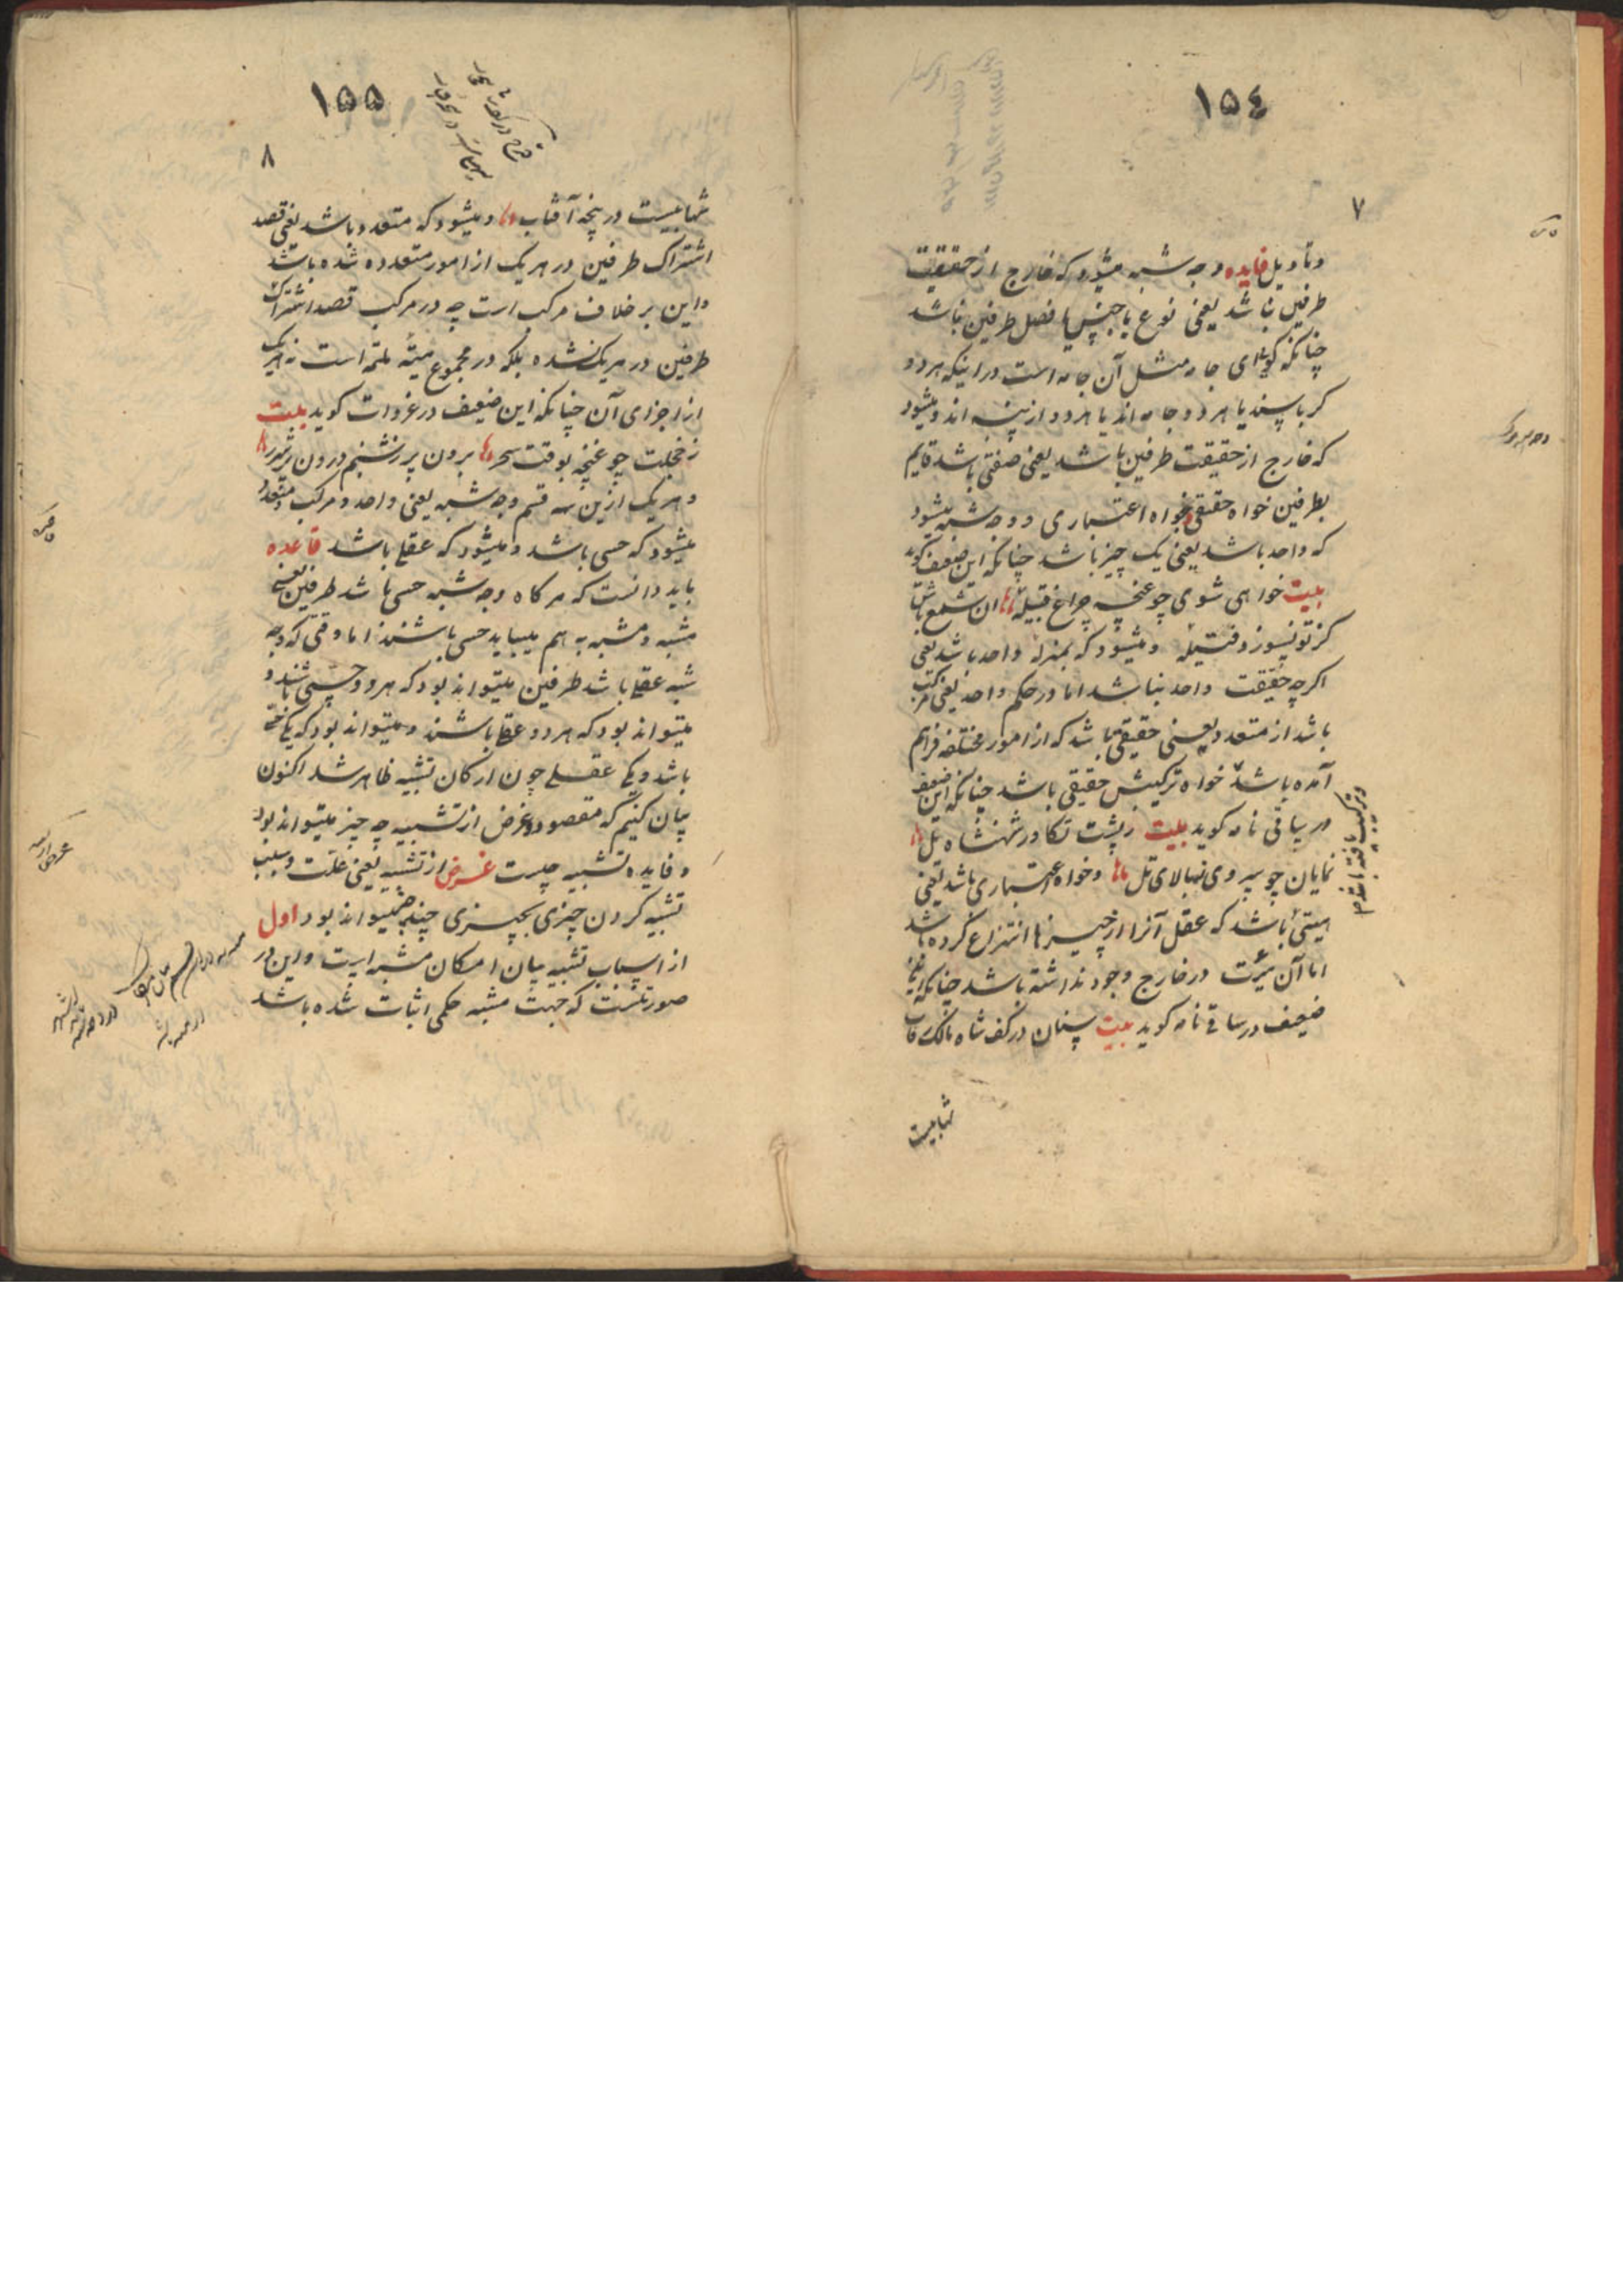 ١٥٤
٧
وتأویل فایده وجه شبه میشود که خارج از حقیقت
طرفین نباشد یعنی نوع یا جنس یا فصل طرفین باشد
چنانکه گویی این جامه مثل آن جامه است در اینکه هر دو
کرباسند یا هر دو جامه اند یا هر دو از پنبه اند و میشود
که خارج از حقیقت طرفین باشد یعنی صفتی باشد قایم
بطرفین خواه حقیقی و خواه اعتباری و وجه شبه میشود
که واحد باشد یعنی یک چیز باشد چنانکه این ضعیف گوید
بیت خواهی شوی چو غنچه چراغ قبیله ان شمع باش
کز تو نسوزد فتیله و میشود که بمنزله واحد باشد یعنی
اگرچه حقیقت واحد نباشد اما در حکم واحد یعنی مرکب
باشد از متعدد یعنی حقیقی باشد که از امور مختلفه فراهم
آمده باشد خواه ترکیبش حقیقی باشد چنانکه این ضعیف
در ساقی نامه کوید بیت ز پشت تکاور شهنشاه یل
نمایان چو سروی نهالای تل و خواه اعتباری باشد یعنی
هیئتی باشد که عقل آنرا از چیزها انتزاع کرده باشد
اما آن هیئت در خارج وجود نداشته باشد چنانکه این
ضعیف در ساقی نامه کوید بیت سنان در کف شاه مالک رقاب
شهابیست
١٥٥
٨
شهابیست در پنجه آفتاب و میشود که متعدد باشد یعنی قصد
اشتراک طرفین در هر یک از امور متعدده شده باشد
و این بر خلاف مرکب است چه در مرکب قصد اشتراک
طرفین در هر یک نشده بلکه در مجموع هیئة ملتئمه است نه هر یک
از اجزای آن چنانکه این ضعیف در غزوات کوید بیت
ز خجلت چو غنچه بوقت سحر برون پر ز شبنم درون پر شرر
و هر یک ازین سه قسم وجه شبه یعنی واحد و مرکب و متعدد
میشود که حسی باشد و میشود که عقلی باشد قاعده
باید دانست که هر کاه وجه شبه حسی باشد طرفین یعنی
مشبه و مشبه به هم میباید حسی باشند اما وقتی که وجه
شبه عقلی باشد طرفین میتواند بود که هر دو حسی باشند و
میتواند بود که هر دو عقلی باشند و میتواند بود که یکی حسی
باشد و یکی عقلی چون ارکان تشبیه ظاهر شد اکنون
بیان کنیم که مقصود و غرض از تشبیه چه چیز میتواند بود
و فایده تشبیه چیست غرض از تشبیه یعنی علت و سبب
تشبیه کردن چیزی بچیزی چند چیز میتواند بود اول
از اسباب تشبیه بیان امکان مشبه است و این در
صورتیست که جهت مشبه حکمی اثبات شده باشد